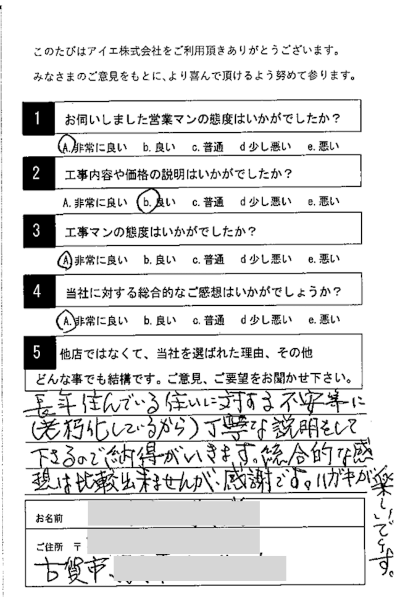 このたびはアイエ株式会社をご利用頂きありがとうございます。
みなさまのご意見をもとに、より喜んで頂けるよう努めて参ります。
1 お伺いしました営業マンの態度はいかがでしたか?
A.非常に良い b.良い c.普通 d少し悪い e.悪い
2 工事内容や価格の説明はいかがでしたか?
A.非常に良い b.良い c.普通 d少し悪い e.悪い
3 工事マンの態度はいかがでしたか?
A非常に良い b.良い c.普通 d少し悪い e.悪い
4 当社に対する総合的なご感想はいかがでしょうか?
A.非常に良い b.良い c.普通 d少し悪い e.悪い
5 他店ではなくて、当社を選ばれた理由、その他
どんな事でも結構です。ご意見、ご要望をお聞かせ下さい。
長年住んでいる住いに対する不安等に
(老朽化しているから)丁寧な説明をして
下さるので納得がいきます。総合的な感
想は比較出来ませんが、感謝です。ハガキが
楽しいです。
お名前
ご住所 〒
古賀市